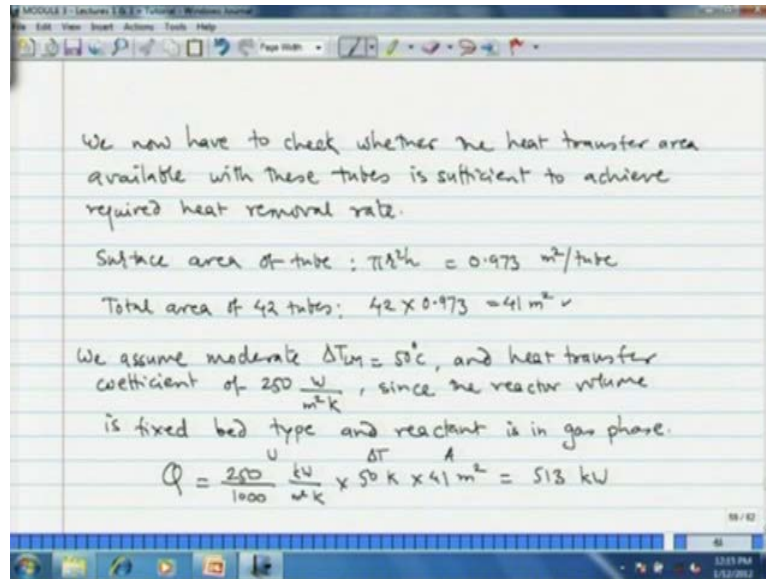 MODULE 3 - Lectures 1 & 2 + Tutorial - Windows Journal
File Edit View Insert Actions Tools Help
Page Width
We now have to check whether the heat transfer area
available with these tubes is sufficient to achieve
required heat removal rate.
Surface area of tube : πr²h = 0.973 m²/tube
Total area of 42 tubes: 42 x 0.973 = 41 m² ✓
We assume moderate ΔTLM = 50°C, and heat transfer
coefficient of 250 W/m²K, since the reactor volume
is fixed bed type and reactant is in gas phase.
U ΔT A
Q = 250/1000 kW/m²K x 50 K x 41 m² = 513 kW
61
12:15 PM
1/12/2012